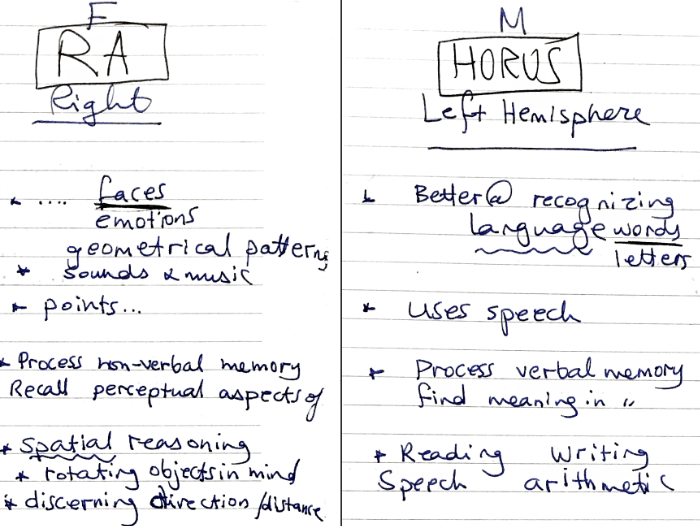 F
RA
Right
* .... faces
emotions
geometrical patterns
* sounds & music
* points...
* Process non-verbal memory
Recall perceptual aspects of
* spatial reasoning
* rotating objects in mind
* discerning direction/distance
M
HORUS
Left Hemisphere
* Better @ recognizing
language words
letters
* uses speech
* Process verbal memory
find meaning in "
* Reading Writing
Speech arithmetic